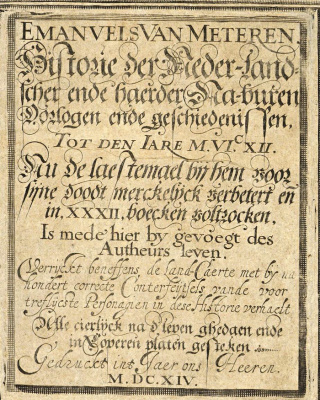 EMANVELS VAN METEREN.
Historie der Neder-land-
scher ende haerder Na-buren
Oorlogen ende geschiedenissen,
TOT DEN IARE M.VI.C XII.
Nu de laestemael bij hem voor
sijne doodt merckelijck verbetert en̄
in. XXXII. boecken voltrocken.
Is mede hier by gevoegt des
Autheurs leven.
Verryckt beneffens de Land-Caerte met by na
hondert correcte Conterfeytsels vande voor
treflijcste Personagien in dese Historie verhaelt
Alle cierlyck na d'leven ghedaen ende
in Coperen platen gesneken
Gedruckt int Jaer ons Heeren.
M.DC.XIV.